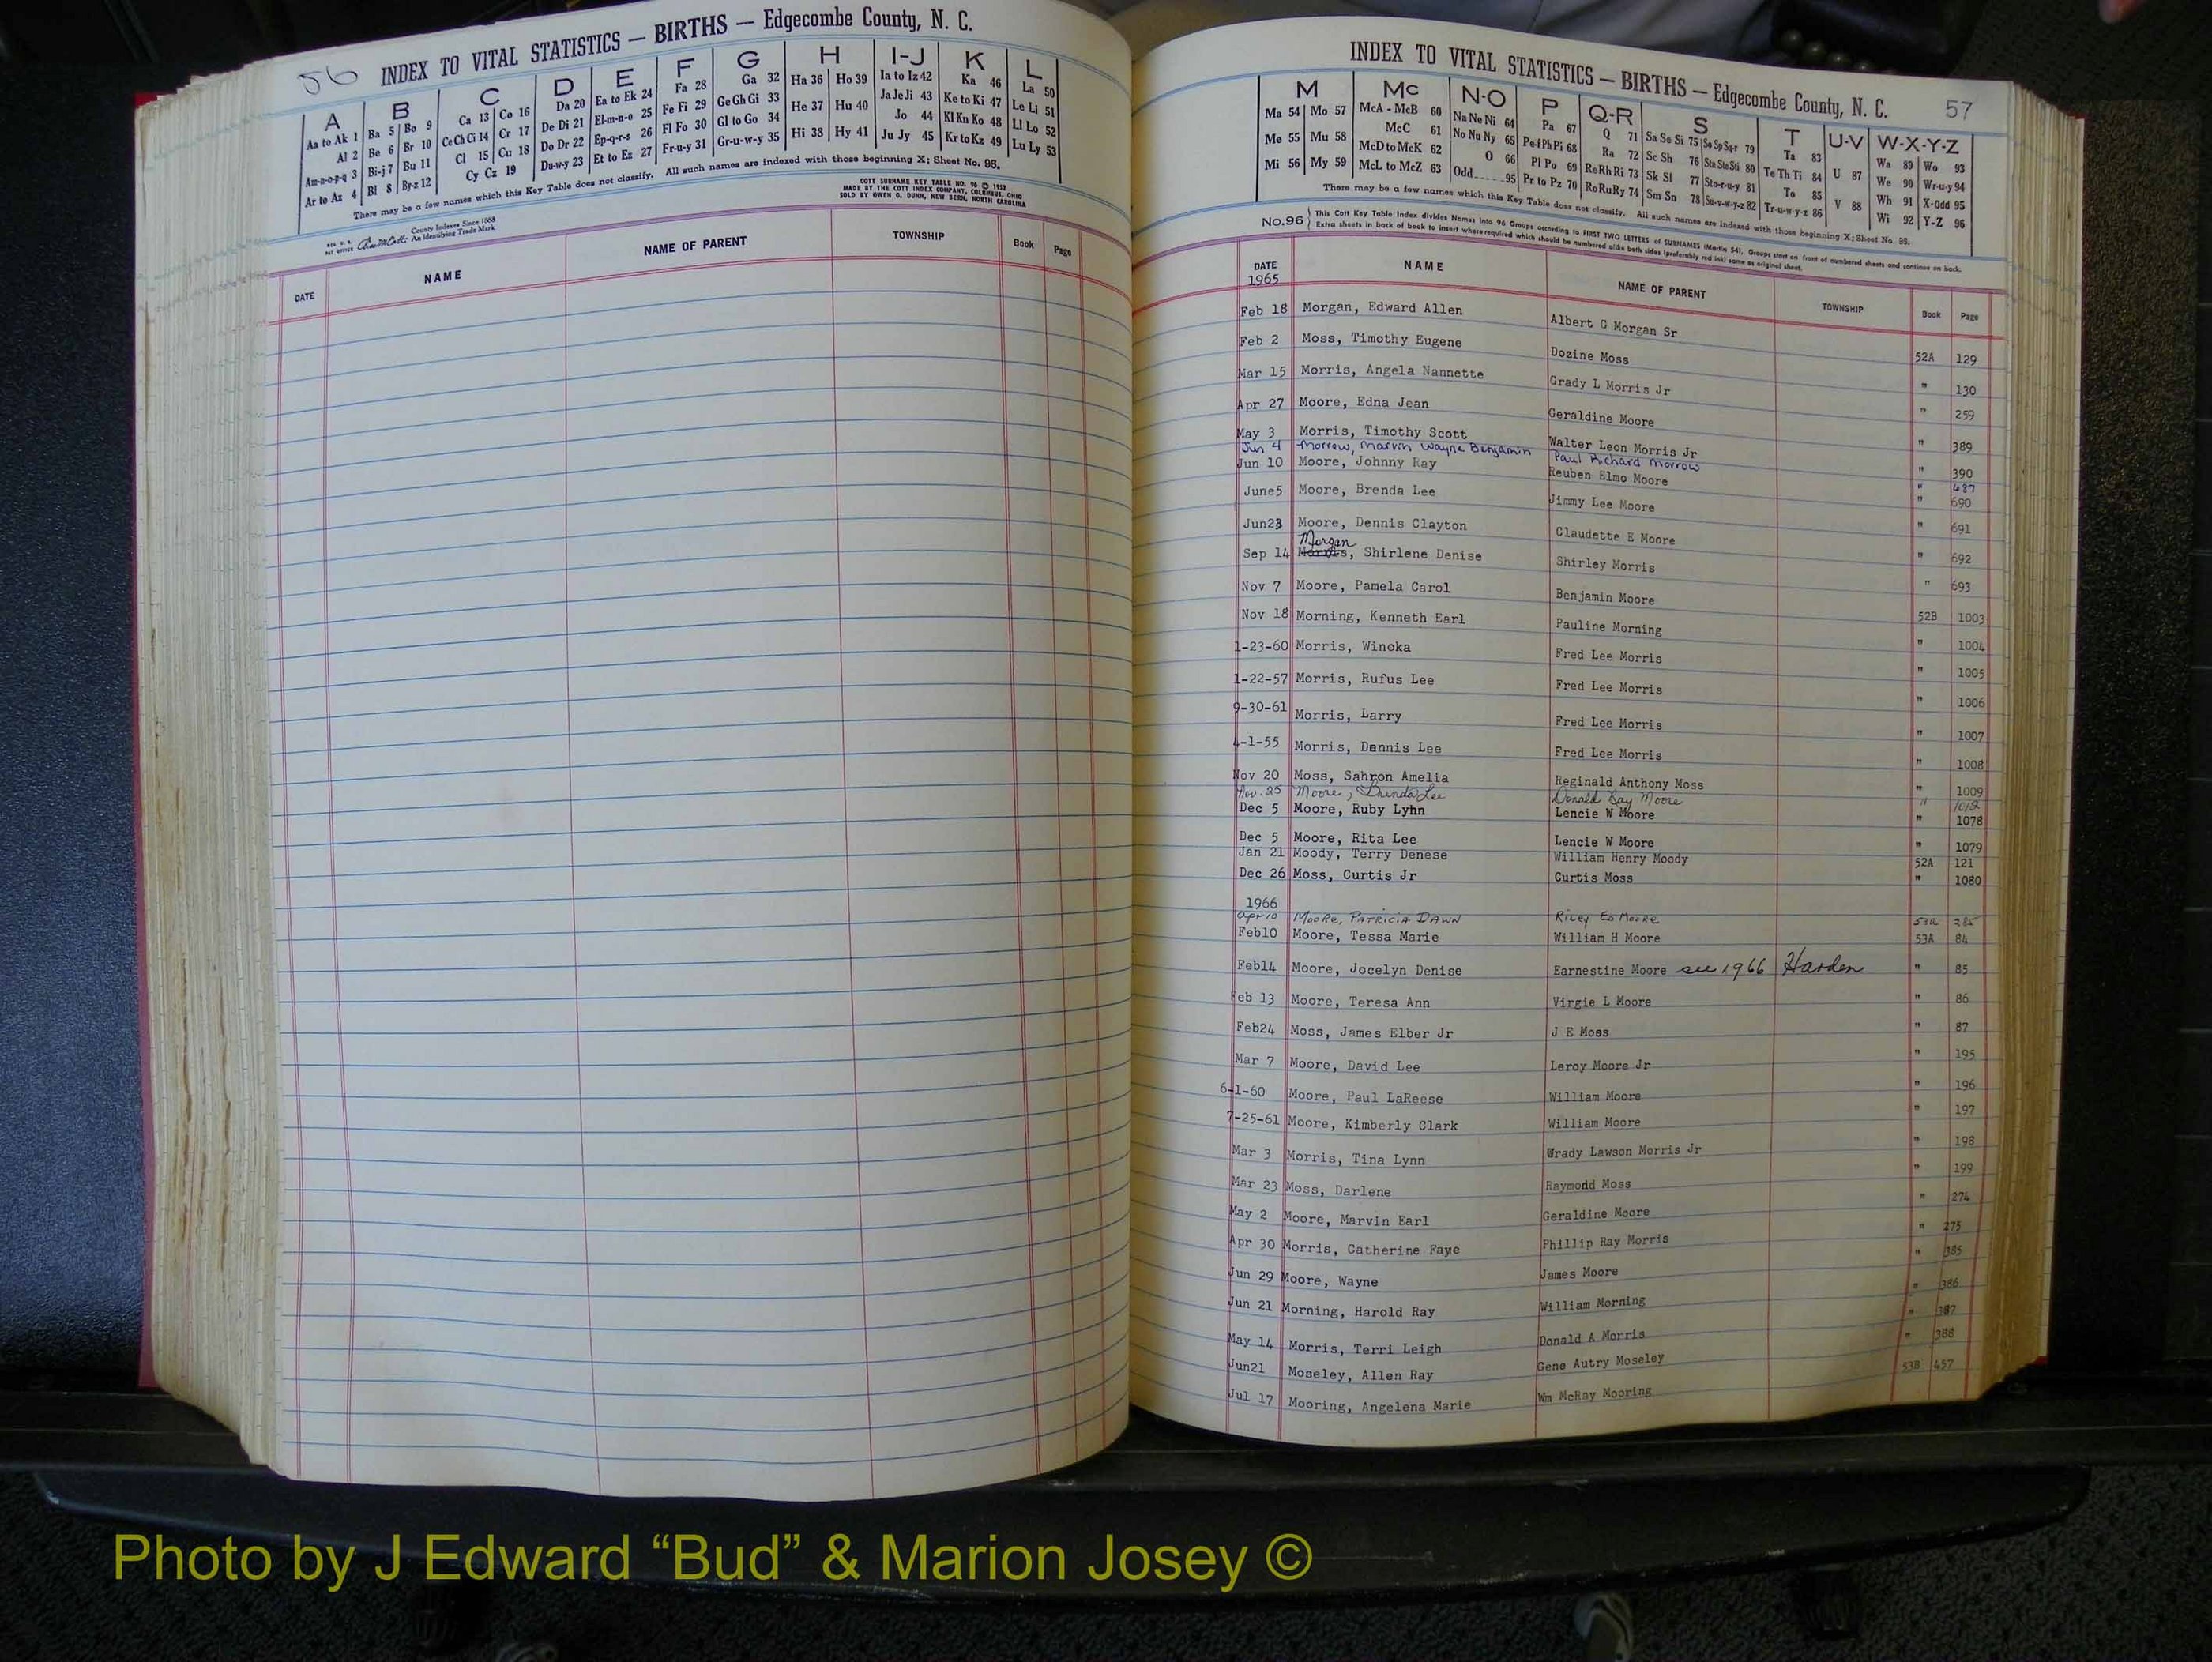 56 INDEX TO VITAL STATISTICS — BIRTHS — Edgecombe County, N. C.
A B C D E F G H I-J K L
Aa to Ak 1 Ba 5 Bo 9 Ca 13 Co 16 Da 20 Ea to Ek 24 Fa 28 Ga 32 Ha 36 Ho 39 Ia to Iz 42 Ka 46 La 50
Al 2 Be 6 Br 10 Ce Ch Ci 14 Cr 17 De Di 21 El-m-n-o 25 Fe Fi 29 Ge Gh Gi 33 He 37 Hu 40 Ja Je Ji 43 Ke to Ki 47 Le Li 51
Am-n-o-p-q 3 Bi-j 7 Bu 11 Cl 15 Cu 18 Do Dr 22 Ep-q-r-s 26 Fl Fo 30 Gl to Go 34 Hi 38 Hy 41 Jo 44 Kl Kn Ko 48 Ll Lo 52
Ar to Az 4 Bl 8 By-z 12 Cy Cz 19 Du-w-y 23 Et to Ez 27 Fr-u-y 31 Gr-u-w-y 35 Ju Jy 45 Kr to Kz 49 Lu Ly 53
There may be a few names which this Key Table does not classify. All such names are indexed with those beginning X; Sheet No. 95.
COTT SURNAME KEY TABLE NO. 96 © 1952
MADE BY THE COTT INDEX COMPANY, COLUMBUS, OHIO
SOLD BY OWEN G. DUNN, NEW BERN, NORTH CAROLINA
County Indexes Since 1888
An Identifying Trade Mark
DATE NAME NAME OF PARENT TOWNSHIP Book Page
INDEX TO VITAL STATISTICS — BIRTHS — Edgecombe County, N. C. 57
M Mc N-O P Q-R S T U-V W-X-Y-Z
Ma 54 Mo 57 McA - McB 60 Na Ne Ni 64 Pa 67 Q 71 Sa Se Si 75 So Sp Sq-r 79 Ta 83 U 87 Wa 89 Wo 93
Me 55 Mu 58 McC 61 No Nu Ny 65 Pe-f Ph Pi 68 Ra 72 Sc Sh 76 Sta Ste Sti 80 Te Th Ti 84 V 88 We 90 Wr-u-y 94
Mi 56 My 59 McD to McK 62 O 66 Pl Po 69 Re Rh Ri 73 Sk Sl 77 Sto-r-u-y 81 To 85 Wh 91 X-Odd 95
McL to McZ 63 Odd 95 Pr to Pz 70 Ro Ru Ry 74 Sm Sn 78 Su-v-w-y-z 82 Tr-u-w-y-z 86 Wi 92 Y-Z 96
There may be a few names which this Key Table does not classify. All such names are indexed with those beginning X; Sheet No. 95.
No. 96 This Cott Key Table Index divides Names into 96 Groups according to FIRST TWO LETTERS of SURNAMES (Martin 54). Groups start on front of numbered sheets and continue on back.
Extra sheets in back of book to insert where required which should be numbered alike both sides (preferably red ink) same as original sheet.
DATE NAME NAME OF PARENT TOWNSHIP Book Page
1965
Feb 18 Morgan, Edward Allen Albert G Morgan Sr 52A 129
Feb 2 Moss, Timothy Eugene Dozine Moss " 130
Mar 15 Morris, Angela Nannette Grady L Morris Jr " 259
Apr 27 Moore, Edna Jean Geraldine Moore " 389
May 3 Morris, Timothy Scott Walter Leon Morris Jr " 390
Jun 4 Morrow, Marvin Wayne Benjamin Paul Richard Morrow " 487
Jun 10 Moore, Johnny Ray Reuben Elmo Moore " 690
June5 Moore, Brenda Lee Jimmy Lee Moore " 691
Jun23 Moore, Dennis Clayton Claudette E Moore " 692
Morgan
Sep 14 Morris, Shirlene Denise Shirley Morris " 693
Nov 7 Moore, Pamela Carol Benjamin Moore 52B 1003
Nov 18 Morning, Kenneth Earl Pauline Morning " 1004
1-23-60 Morris, Winoka Fred Lee Morris " 1005
1-22-57 Morris, Rufus Lee Fred Lee Morris " 1006
9-30-61 Morris, Larry Fred Lee Morris " 1007
4-1-55 Morris, Dennis Lee Fred Lee Morris " 1008
Nov 20 Moss, Sahron Amelia Reginald Anthony Moss " 1009
Nov. 25 Moore, Lee Donald Ray Moore " 1012
Dec 5 Moore, Ruby Lyhn Lencie W Moore " 1078
Dec 5 Moore, Rita Lee Lencie W Moore " 1079
Jan 21 Moody, Terry Denese William Henry Moody 52A 121
Dec 26 Moss, Curtis Jr Curtis Moss " 1080
1966
Apr 10 Moore, Patricia Dawn Riley Ed Moore 53a 285
Feb10 Moore, Tessa Marie William H Moore 53A 84
Feb14 Moore, Jocelyn Denise Earnestine Moore see 1966 Harden " 85
Feb 13 Moore, Teresa Ann Virgie L Moore " 86
Feb24 Moss, James Elber Jr J E Moss " 87
Mar 7 Moore, David Lee Leroy Moore Jr " 195
6-1-60 Moore, Paul LaReese William Moore " 196
7-25-61 Moore, Kimberly Clark William Moore " 197
Mar 3 Morris, Tina Lynn Grady Lawson Morris Jr " 198
Mar 23 Moss, Darlene Raymond Moss " 199
May 2 Moore, Marvin Earl Geraldine Moore " 274
Apr 30 Morris, Catherine Faye Phillip Ray Morris " 275
Jun 29 Moore, Wayne James Moore " 385
Jun 21 Morning, Harold Ray William Morning " 386
May 14 Morris, Terri Leigh Donald A Morris " 387
Jun21 Moseley, Allen Ray Gene Autry Moseley " 388
Jul 17 Mooring, Angelena Marie Wm McRay Mooring 53B 457
Photo by J Edward “Bud” & Marion Josey ©